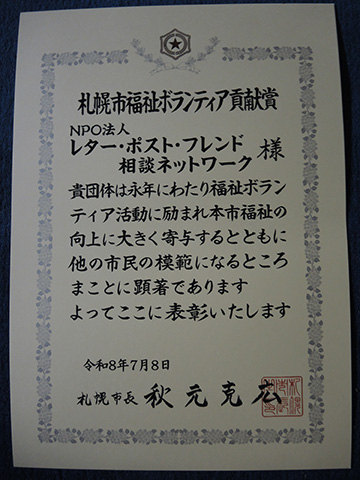 札幌市福祉ボランティア貢献賞
NPO法人
レター・ポスト・フレンド
相談ネットワーク 様
貴団体は永年にわたり福祉ボラン
ティア活動に励まれ本市福祉の
向上に大きく寄与するとともに
他の市民の模範になるところ
まことに顕著であります
よってここに表彰いたします
令和8年7月8日
札幌市長 秋元克広